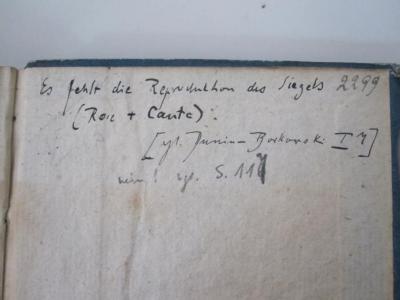 Es fehlt die Reproduktion des Siegels 2299
(Rose + Caute).
[vgl. Dunin-Borkowski I 4]
nein! vgl. S. 117